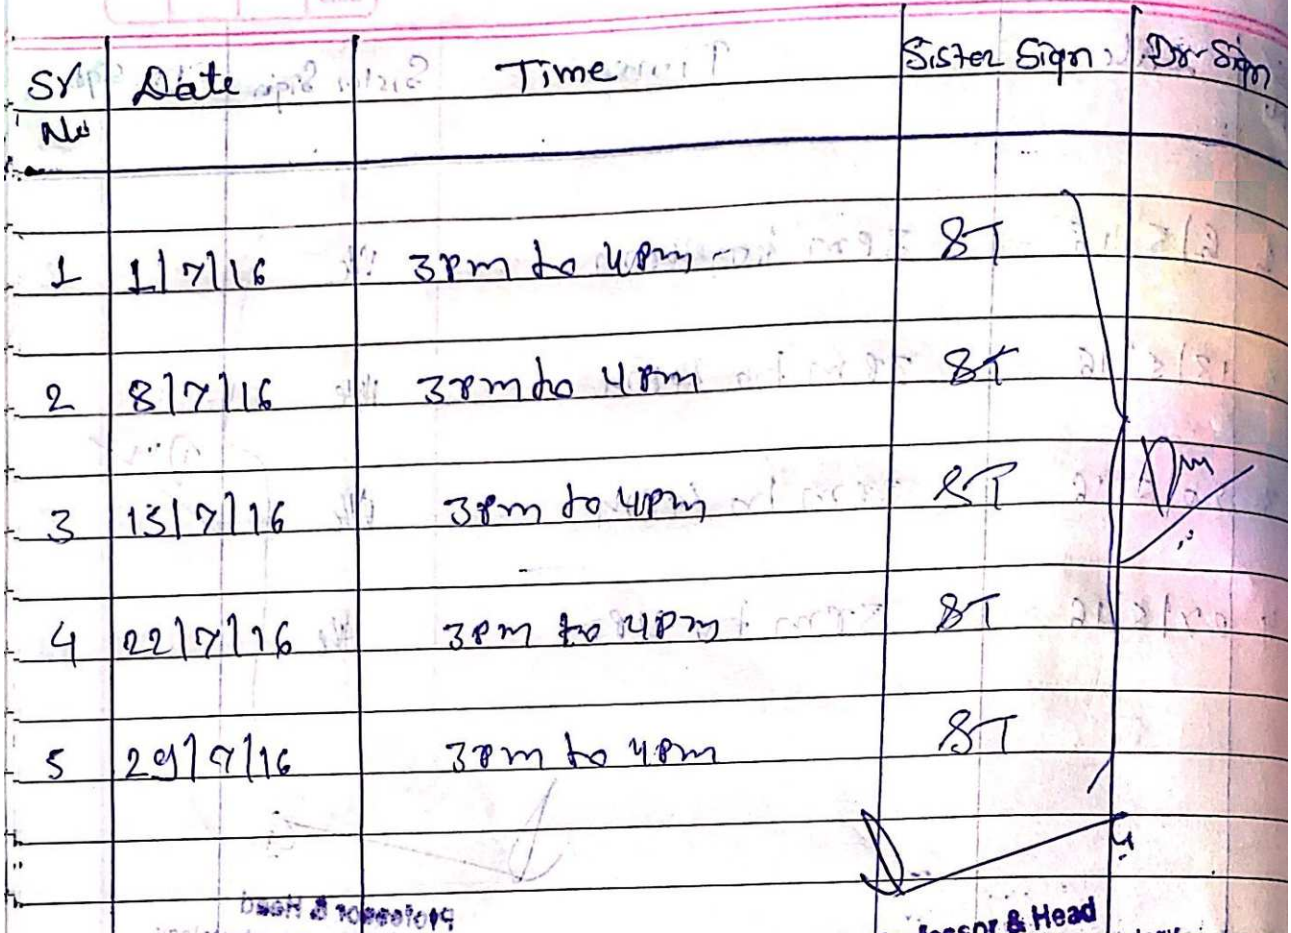 Sr No Date Time Sister Sign Dr Sign
1 1/7/16 3pm to 4pm ST
2 8/7/16 3pm to 4pm ST
3 15/7/16 3pm to 4pm ST
4 22/7/16 3pm to 4pm ST
5 29/7/16 3pm to 4pm ST
& Head